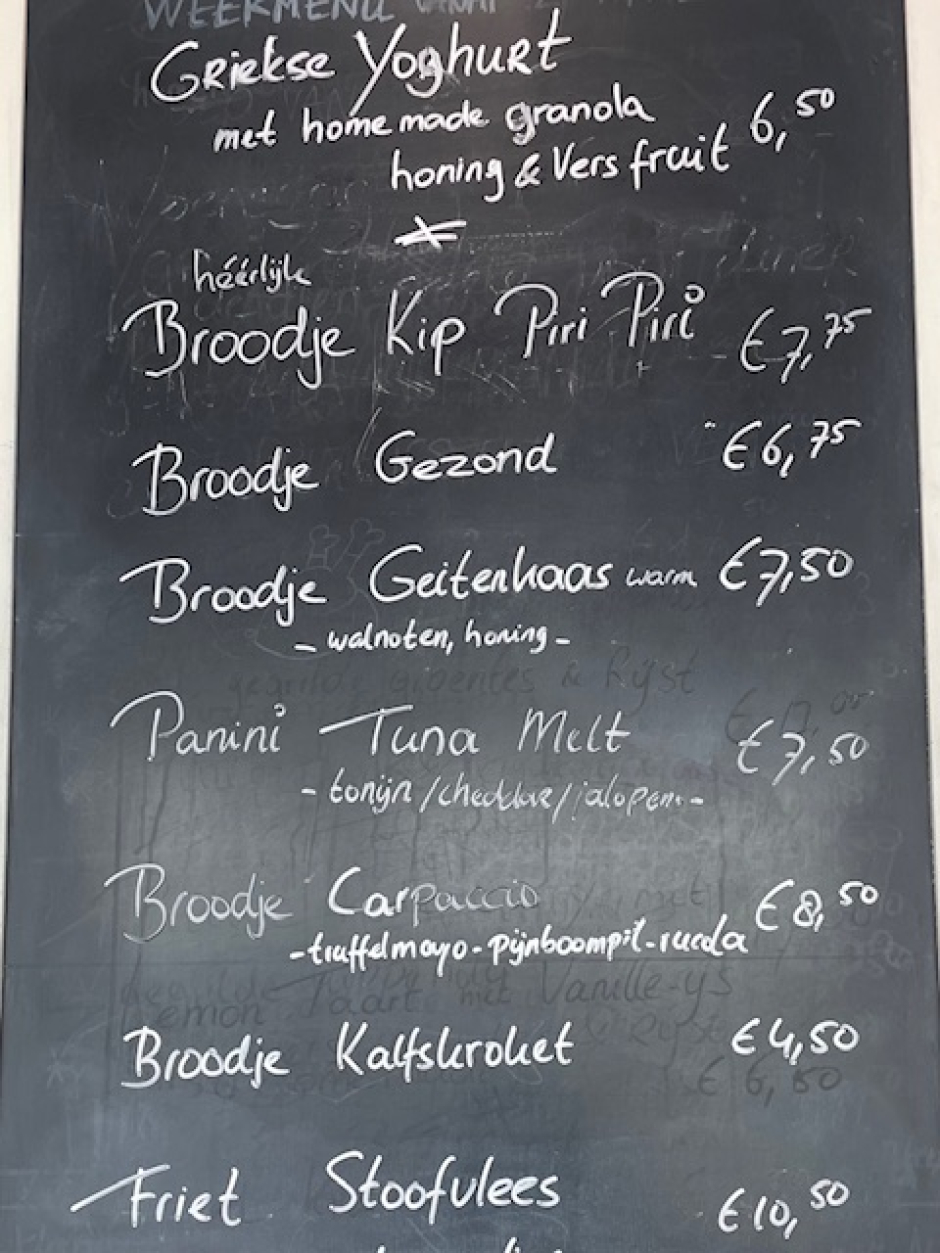 WEEKMENU
Griekse Yoghurt
met home made granola
honing & Vers fruit 6,50
héérlijk
Broodje Kip Piri Piri €7,75
Broodje Gezond €6,75
Broodje Geitenkaas warm €7,50
- walnoten, honing -
Panini Tuna Melt €7,50
- tonijn/cheddar/jalopeni -
Broodje Carpaccio €8,50
- truffelmayo - pijnboompit - rucola
Broodje Kalfskroket €4,50
Friet Stoofvlees €10,50